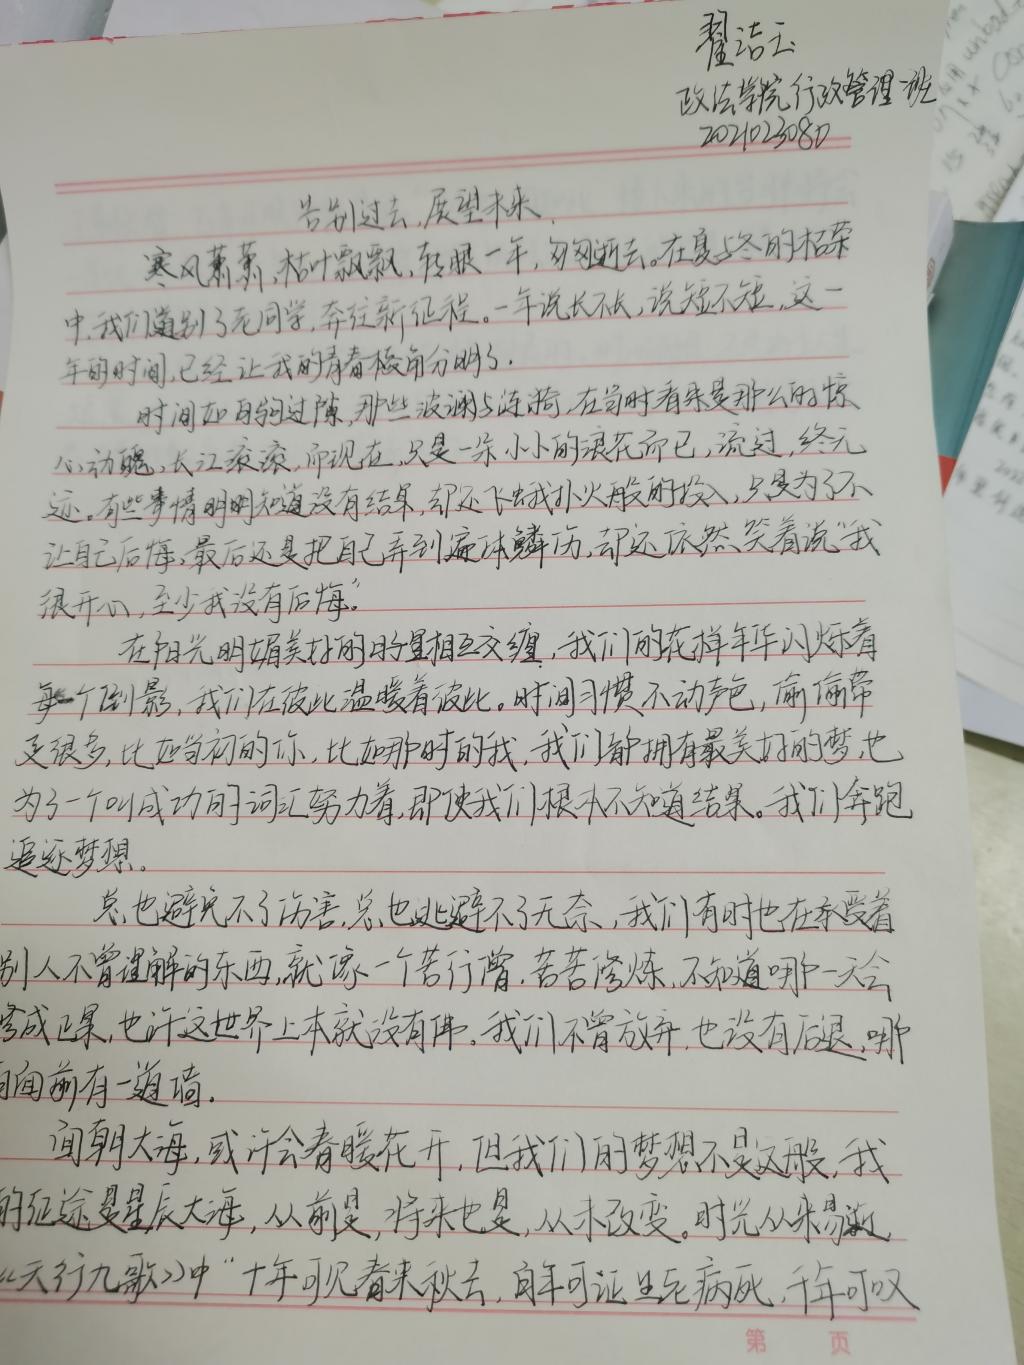 翟洁玉
政法学院行政管理一班
2021023080
告别过去,展望未来.
寒风萧萧,枯叶飘飘,转眼一年,匆匆逝去。在夏与冬的枯荣
中,我们道别了老同学,奔往新征程。一年说长不长,说短不短,这一
年的时间,已经让我的青春棱角分明了.
时间如白驹过隙,那些波澜与涟漪,在当时看来是那么的惊
心动魄,长江滚滚,而现在,只是一朵小小的浪花而已,流过,终无
迹。有些事情明明知道没有结果,却还飞蛾扑火般的投入,只是为了不
让自己后悔,最后还是把自己弄到遍体鳞伤,却还依然笑着说“我
很开心,至少我没有后悔”。
在阳光明媚美好的时星相互交缠,我们的花样年华闪烁着
每一个倒影,我们在彼此温暖着彼此。时间习惯不动声色,偷偷带
走很多,比如当初的你,比如那时的我,我们都拥有最美好的梦,也
为了一个叫成功的词汇努力着,即使我们根本不知道结果。我们奔跑
追逐梦想。
总也避免不了伤害,总也逃避不了无奈,我们有时也在承受着
别人不曾理解的东西,就像一个苦行僧,苦苦修炼,不知道哪一天会
修成正果,也许这世界上本就没有佛。我们不曾放弃,也没有后退,哪
怕面前有一道墙.
面朝大海,或许会春暖花开,但我们的梦想不是这般,我
的征途是星辰大海,从前是,将来也是,从未改变。时光从来易逝,
《天行九歌》中“十年可见春来秋去,百年可证生老病死,千年可叹
第 页